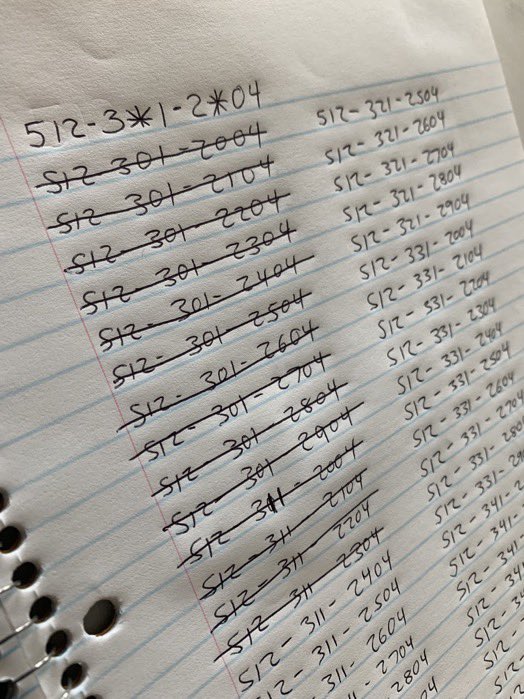 512-3*1-2*04
512-301-2004
512-301-2104
512-301-2204
512-301-2304
512-301-2404
512-301-2504
512-301-2604
512-301-2704
512-301-2804
512-301-2904
512-311-2004
512-311-2104
512-311-2204
512-311-2304
512-311-2404
512-311-2504
311-2604
2704
2804
512-321-2504
512-321-2604
512-321-2704
512-321-2804
512-321-2904
512-331-2004
512-331-2104
512-331-2204
512-331-2304
512-331-2404
512-331-2504
512-331-2604
512-331-2704
512-331-280
512-331-2
512-341-2
512-341-
512-341
512-34
512-3